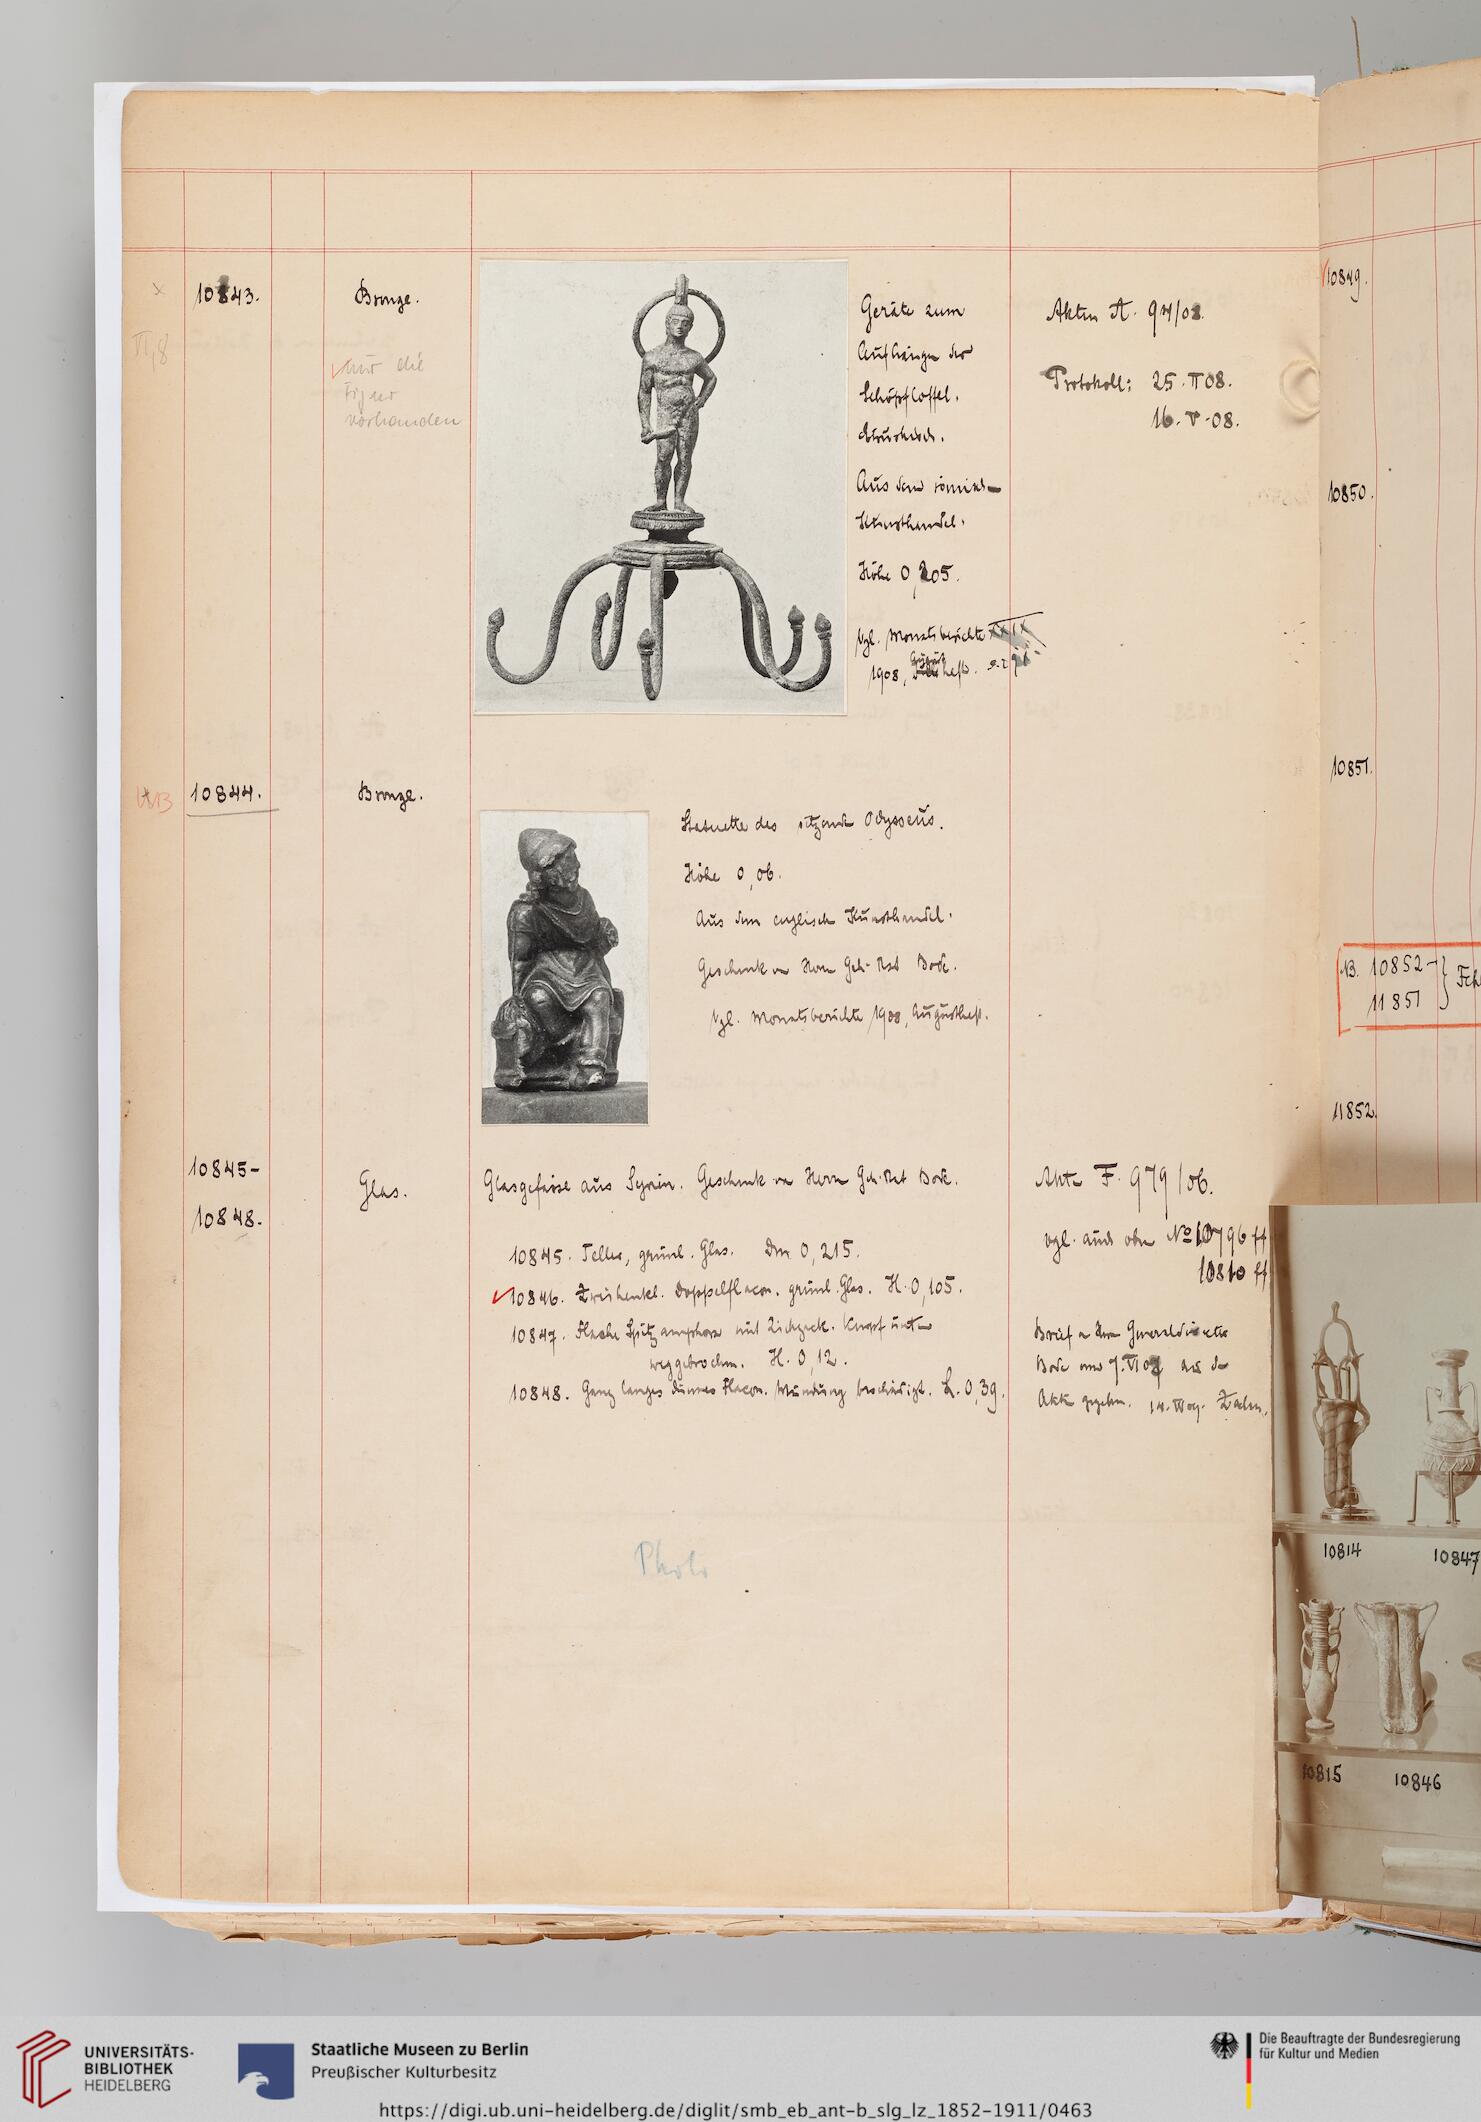 10843.
Bronze.
nur die
Figur
vorhanden
Geräte zum
Aufhängen der
Schöpflöffel.
Etruskisch.
Aus dem römisch
Kunsthandel.
Höhe 0,205.
Vgl. Monatsberichte
1908, heft.
Akten A. 97/08.
Protokoll: 25. II 08.
16. V. 08.
10844.
Bronze.
Statuette des sitzenden Odysseus.
Höhe 0,06.
Aus dem englisch Kunsthandel.
Geschenk von Herrn Geh. Rat Bode.
Vgl. Monatsberichte 1908, Augustheft.
10845-
10848.
Glas.
Glasgefässe aus Syrien. Geschenk von Herrn Geh. Rat Bode.
10845. Teller, grünl. Glas. Dm. 0,215.
10846. Zweihenkl. Doppelflacon. grünl. Glas. H. 0,105.
10847. Flache Spitzamphora mit Zickzack. Knopf unten
weggebrochen. H. 0,12.
10848. Ganz langes dünnes Flacon. Mündung beschädigt. L. 0,39.
Akte F. 979/06.
vgl. auch oben No 10796 ff
10810 ff
Brief an Herrn Generaldirektor
Bode vom
Akte gegeben. Zahn.
Photo
10849.
10850.
10851.
NB. 10852-
11851
11852.
10814
10847
10815
10846
UNIVERSITÄTS-
BIBLIOTHEK
HEIDELBERG
Staatliche Museen zu Berlin
Preußischer Kulturbesitz
Die Beauftragte der Bundesregierung
für Kultur und Medien
https://digi.ub.uni-heidelberg.de/diglit/smb_eb_ant-b_slg_lz_1852-1911/0463